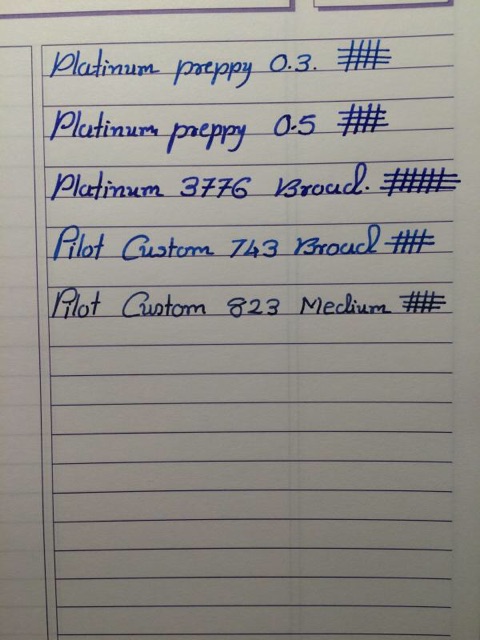 Platinum preppy 0.3.
Platinum preppy 0.5
Platinum 3776 Broad.
Pilot Custom 743 Broad
Pilot Custom 823 Medium